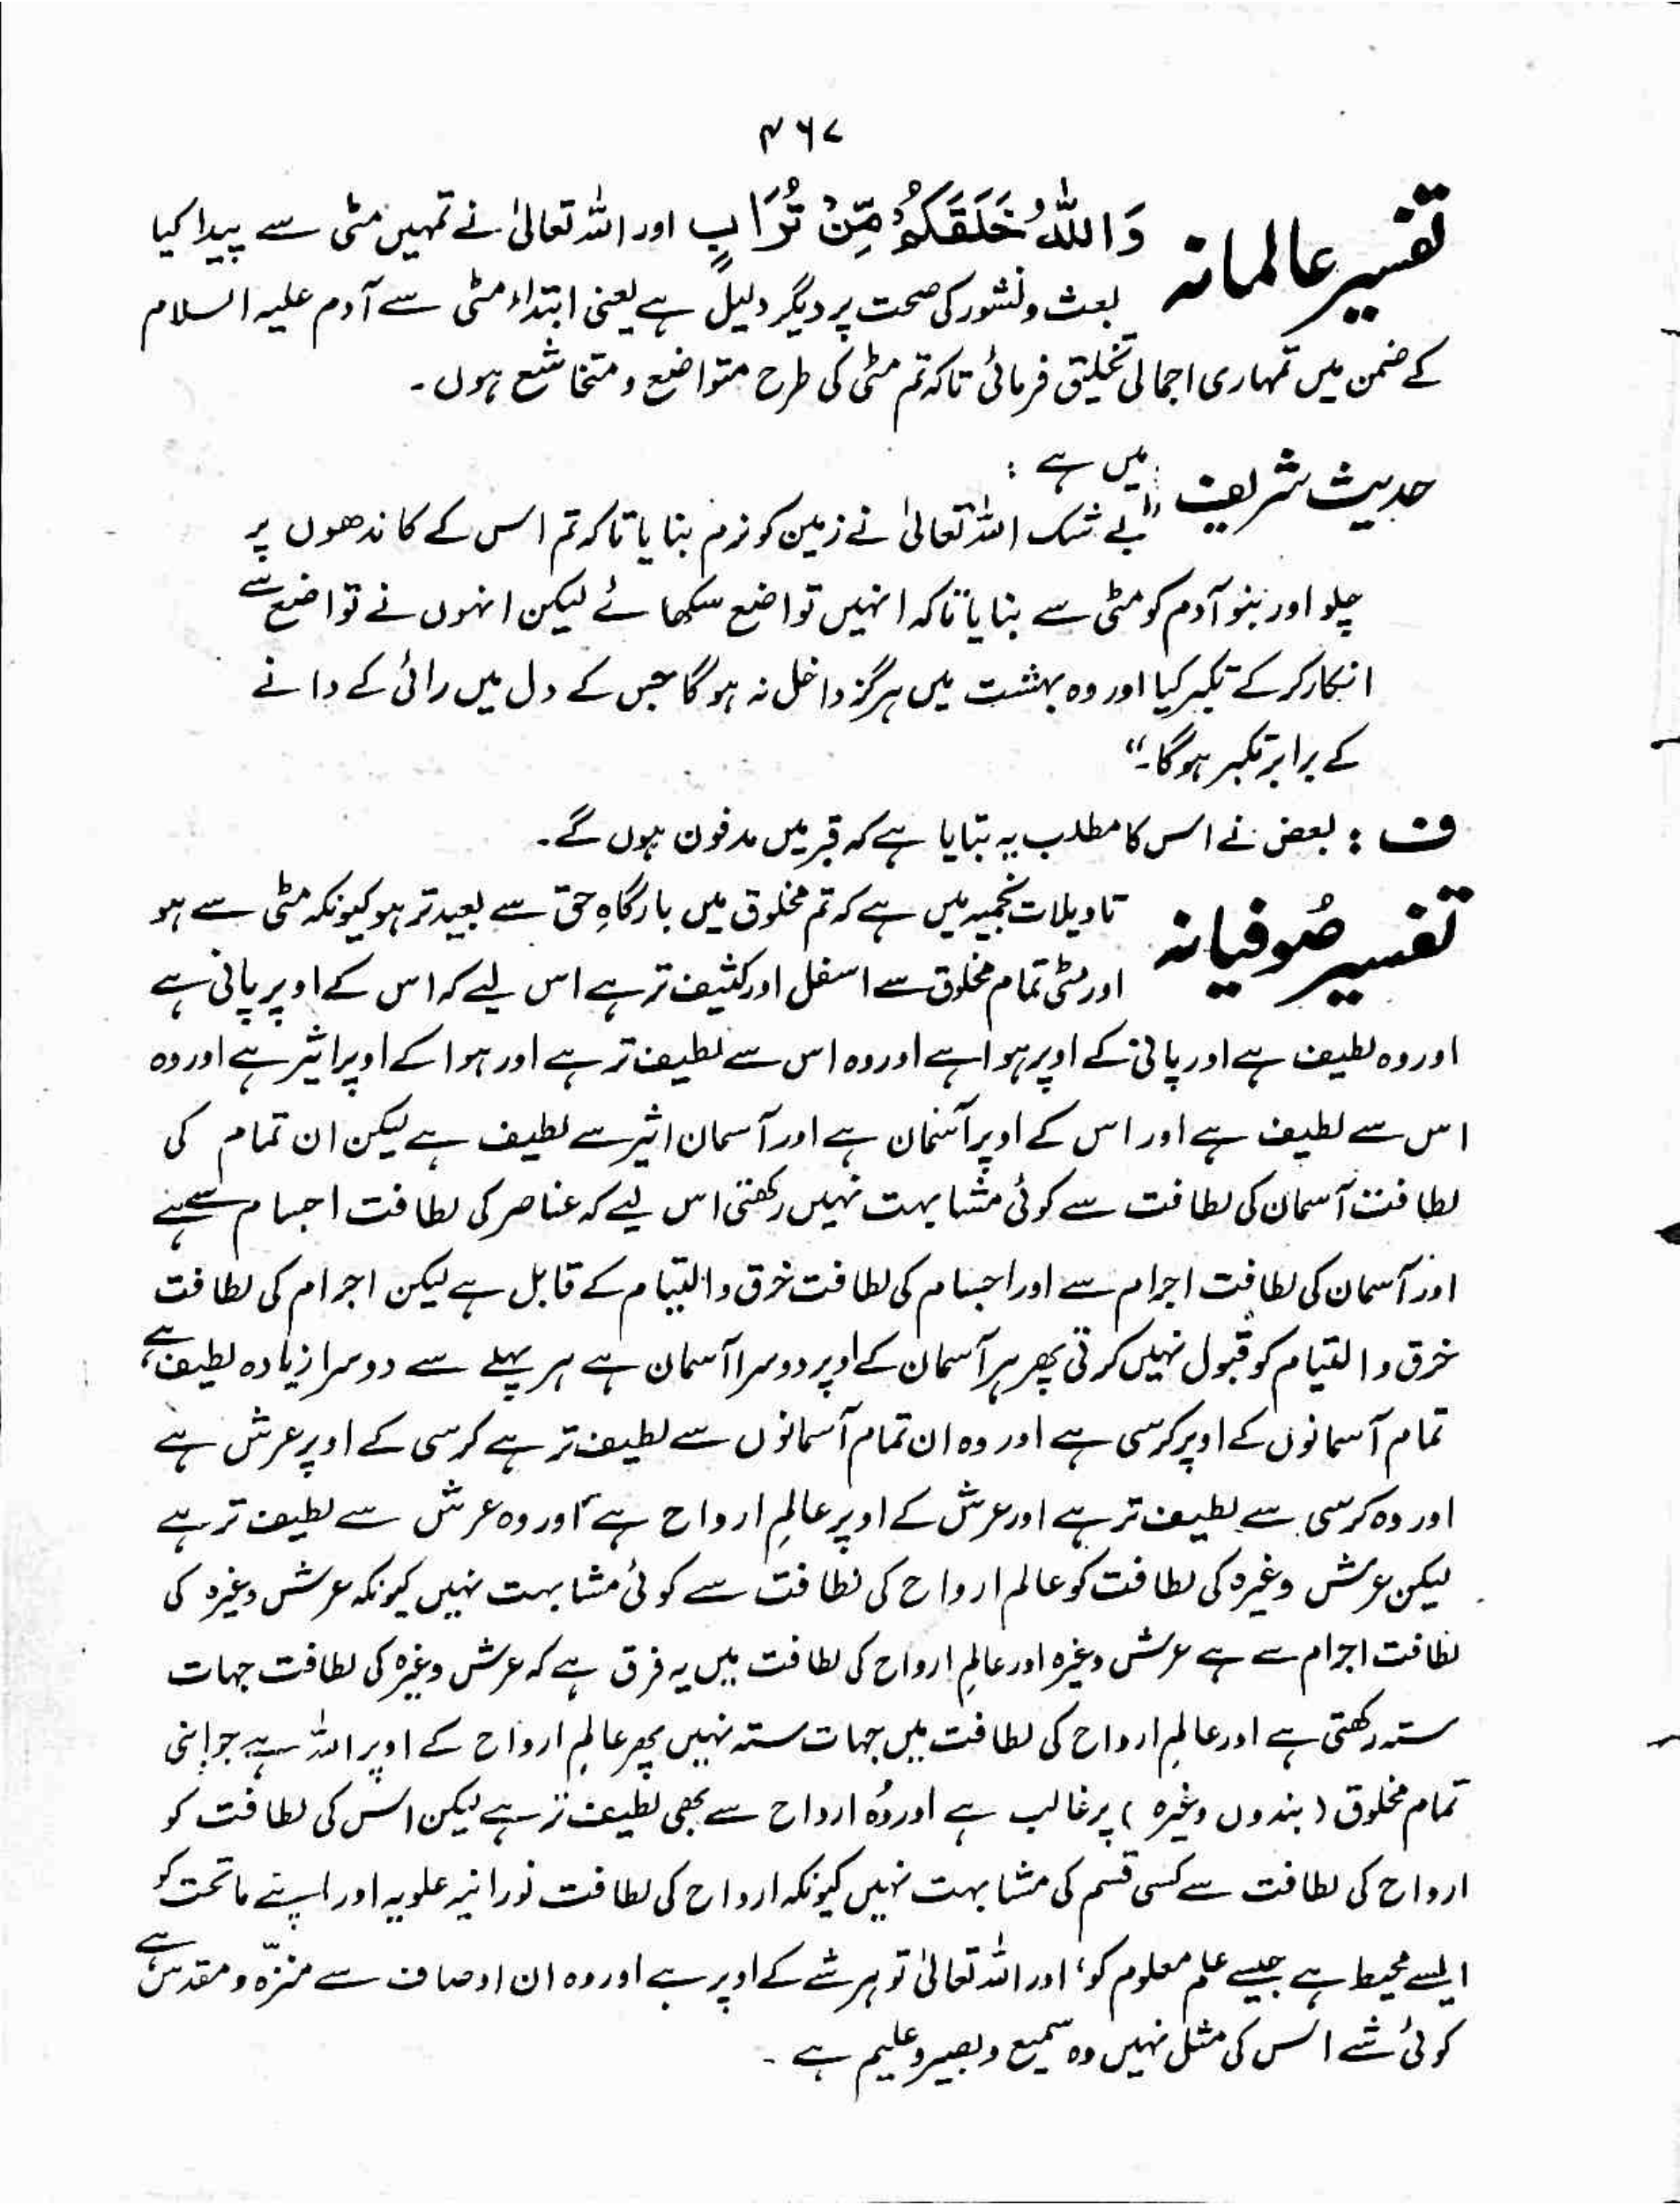 ۴۶۷
تفسیر عالمانہ وَاللّٰہُ خَلَقَکُمْ مِّنْ تُرَابٍ اور اللہ تعالیٰ نے تمہیں مٹی سے پیدا کیا
بعث ونشور کی صحت پر دیگر دلیل ہے یعنی ابتداء مٹی سے آدم علیہ السلام
کے ضمن میں تمہاری اجمالی تخلیق فرمائی تاکہ تم مٹی کی طرح متواضع و متخاشع ہوں۔
حدیث شریف میں ہے :
"بے شک اللہ تعالیٰ نے زمین کو نرم بنایا تاکہ تم اس کے کاندھوں پر
چلو اور بنو آدم کو مٹی سے بنایا تاکہ انہیں تواضع سکھائے لیکن انہوں نے تواضع سے
انکار کرکے تکبر کیا اور وہ بہشت میں ہرگز داخل نہ ہوگا جس کے دل میں رائی کے دانے
کے برابر تکبر ہوگا۔"
ف : بعض نے اس کا مطلب یہ بتایا ہے کہ قبر میں مدفون ہوں گے۔
تفسیر صُوفیانہ تاویلات نجمیہ میں ہے کہ تم مخلوق میں بارگاہِ حق سے بعید تر ہو کیونکہ مٹی سے ہو
اور مٹی تمام مخلوق سے اسفل اور کثیف تر ہے اس لیے کہ اس کے اوپر پانی ہے
اور وہ لطیف ہے اور پانی کے اوپر ہوا ہے اور وہ اس سے لطیف تر ہے اور ہوا کے اوپر اثیر ہے اور وہ
اس سے لطیف ہے اور اس کے اوپر آسمان ہے اور آسمان اثیر سے لطیف ہے لیکن ان تمام کی
لطافت آسمان کی لطافت سے کوئی مشابہت نہیں رکھتی اس لیے کہ عناصر کی لطافت اجسام سے ہے
اور آسمان کی لطافت اجرام سے اور اجسام کی لطافت خرق والتیام کے قابل ہے لیکن اجرام کی لطافت
خرق و التیام کو قبول نہیں کرتی پھر ہر آسمان کے اوپر دوسرا آسمان ہے ہر پہلے سے دوسرا زیادہ لطیف ہے،
تمام آسمانوں کے اوپر کرسی ہے اور وہ ان تمام آسمانوں سے لطیف تر ہے کرسی کے اوپر عرش ہے
اور وہ کرسی سے لطیف تر ہے اور عرش کے اوپر عالمِ ارواح ہے اور وہ عرش سے لطیف تر ہے
لیکن عرش وغیرہ کی لطافت کو عالم ارواح کی لطافت سے کوئی مشابہت نہیں کیونکہ عرش وغیرہ کی
لطافت اجرام سے ہے عرش وغیرہ اور عالمِ ارواح کی لطافت میں یہ فرق ہے کہ عرش وغیرہ کی لطافت جہات
ستہ رکھتی ہے اور عالمِ ارواح کی لطافت میں جہات ستہ نہیں پھر عالمِ ارواح کے اوپر اللہ ہے جو اپنی
تمام مخلوق ( بندوں وغیرہ ) پر غالب ہے اور وُہ ارواح سے بھی لطیف تر ہے لیکن اس کی لطافت کو
ارواح کی لطافت سے کسی قسم کی مشابہت نہیں کیونکہ ارواح کی لطافت نورانیہ علویہ اور اپنے ماتحت کو
ایسے محیط ہے جیسے علم معلوم کو، اور اللہ تعالیٰ تو ہر شے کے اوپر ہے اور وہ ان اوصاف سے منزّہ و مقدس ہے
کوئی شے اس کی مثل نہیں وہ سمیع وبصیر وعلیم ہے ۔